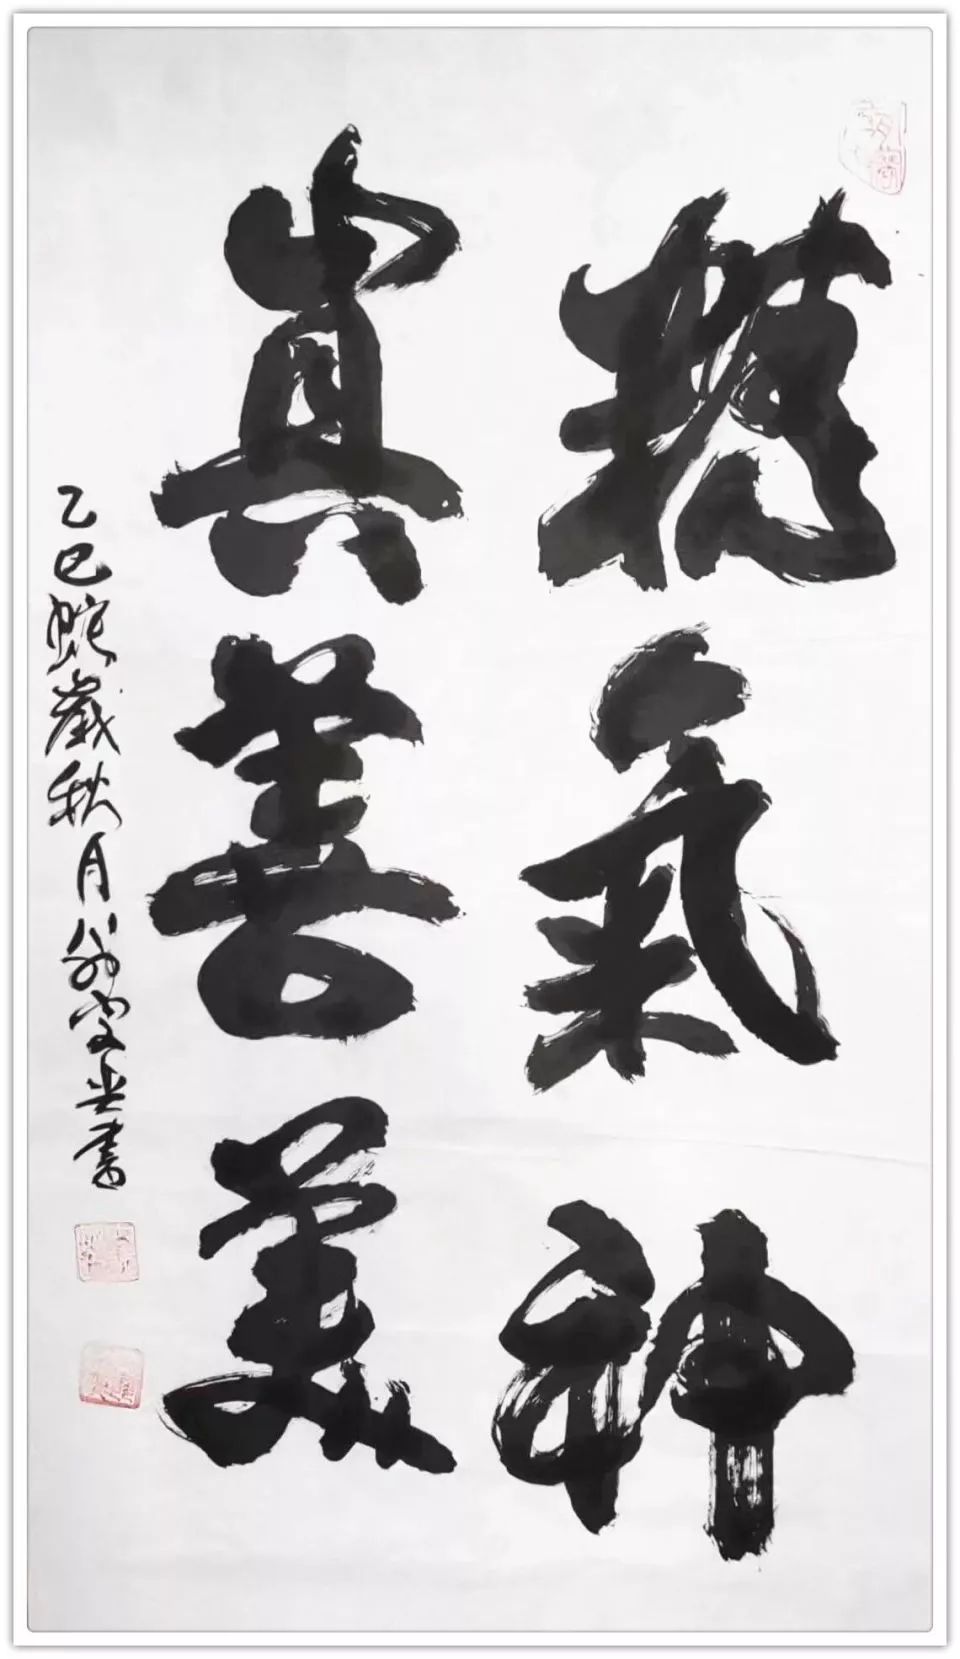 精氣神
真善美
乙巳蛇歲秋月 書